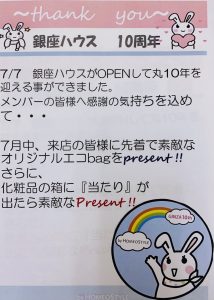 ～thank you～
銀座ハウス 10周年
7/7 銀座ハウスがOPENして丸10年を
迎える事ができました。
メンバーの皆様へ感謝の気持ちを込め
て・・・
7月中、来店の皆様に先着で素敵な
オリジナルエコbagをpresent!!
さらに、
化粧品の箱に『当たり』が
出たら素敵なPresent!!
GINZA 10th
by HOMEOSTYLE